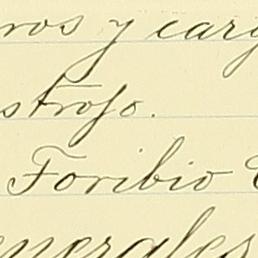 ros y carg
strofo.
Toribio
enerales